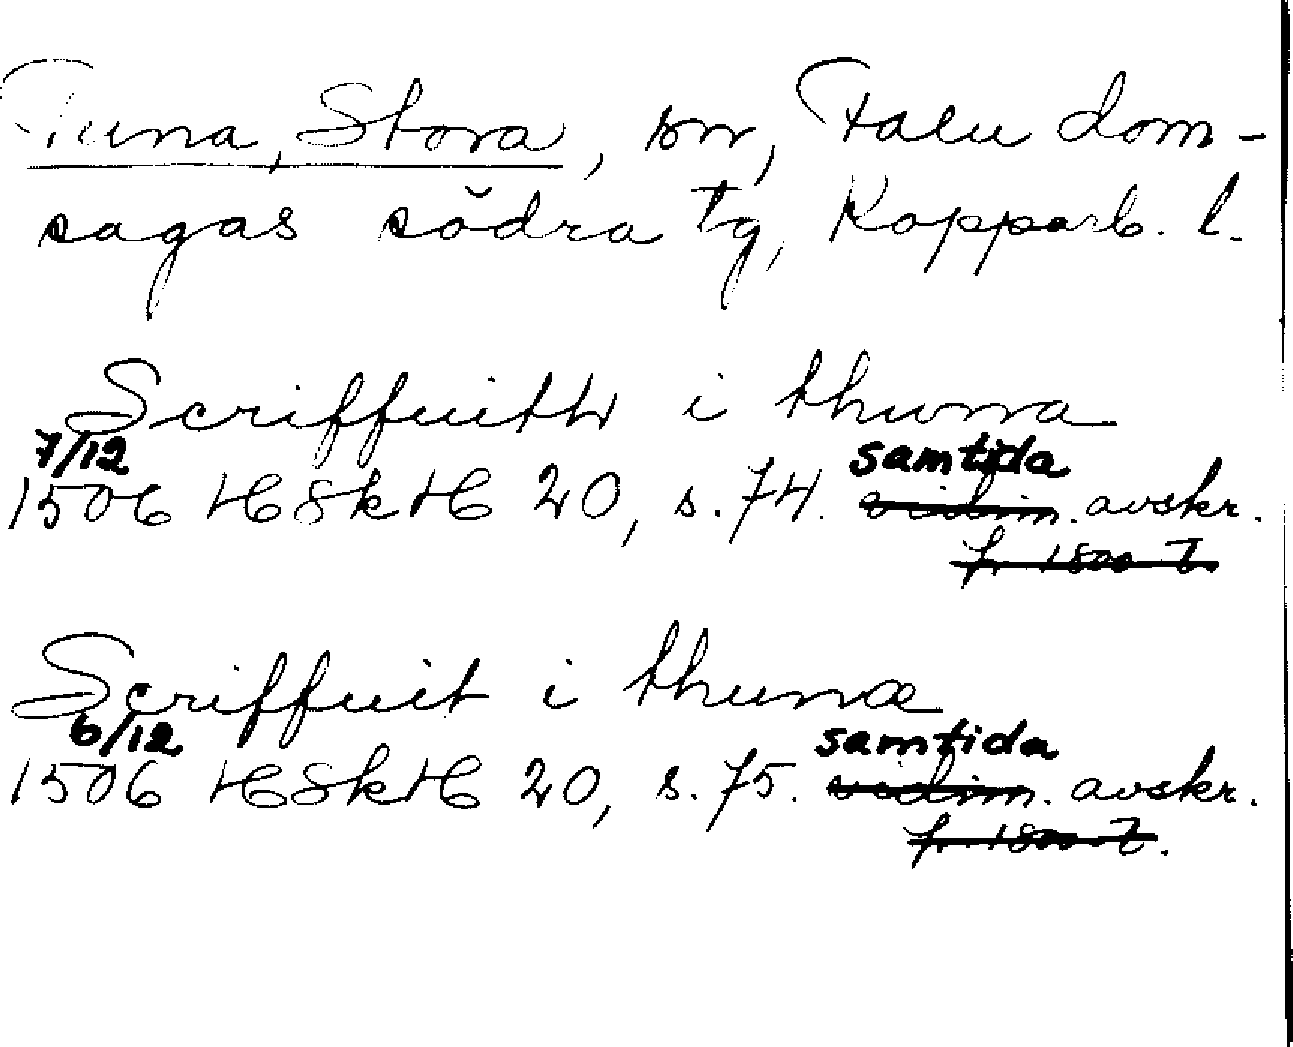 Tuna, Stora, sn, Falu dom-
sagas södra tg, Kopparb. l.
Scriffuith i thuna
7/12 samtida
1506 HSkH 20, s. 74. vidim. avskr.
fr 1800 t.
Scriffuit i thunæ
6/12 samtida
1506 HSkH 20, s. 75. vidim. avskr.
fr. 1800 t.